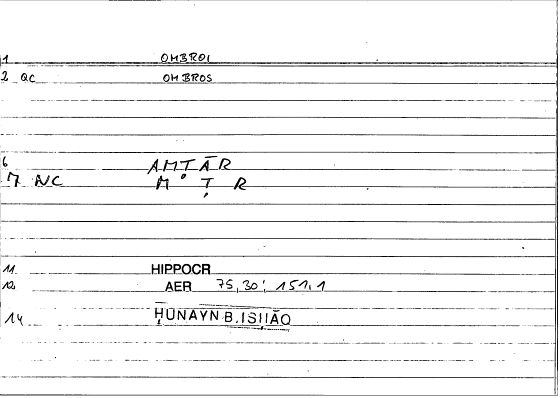 1 OMBROI
2 QC OMBROS
6 AMṬĀR
7 NC M Ṭ R
11 HIPPOCR
12 AER 75,30: 151,1
14 ḤUNAYN B. ISḤĀQ